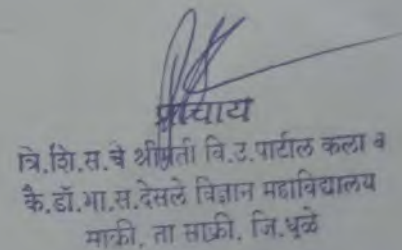 प्राचार्य
त्रि.शि.स.चे श्रीमती वि.उ.पाटील कला व
कै.डॉ.भा.स.देसले विज्ञान महाविद्यालय
साक्री, ता साक्री, जि.धुळे